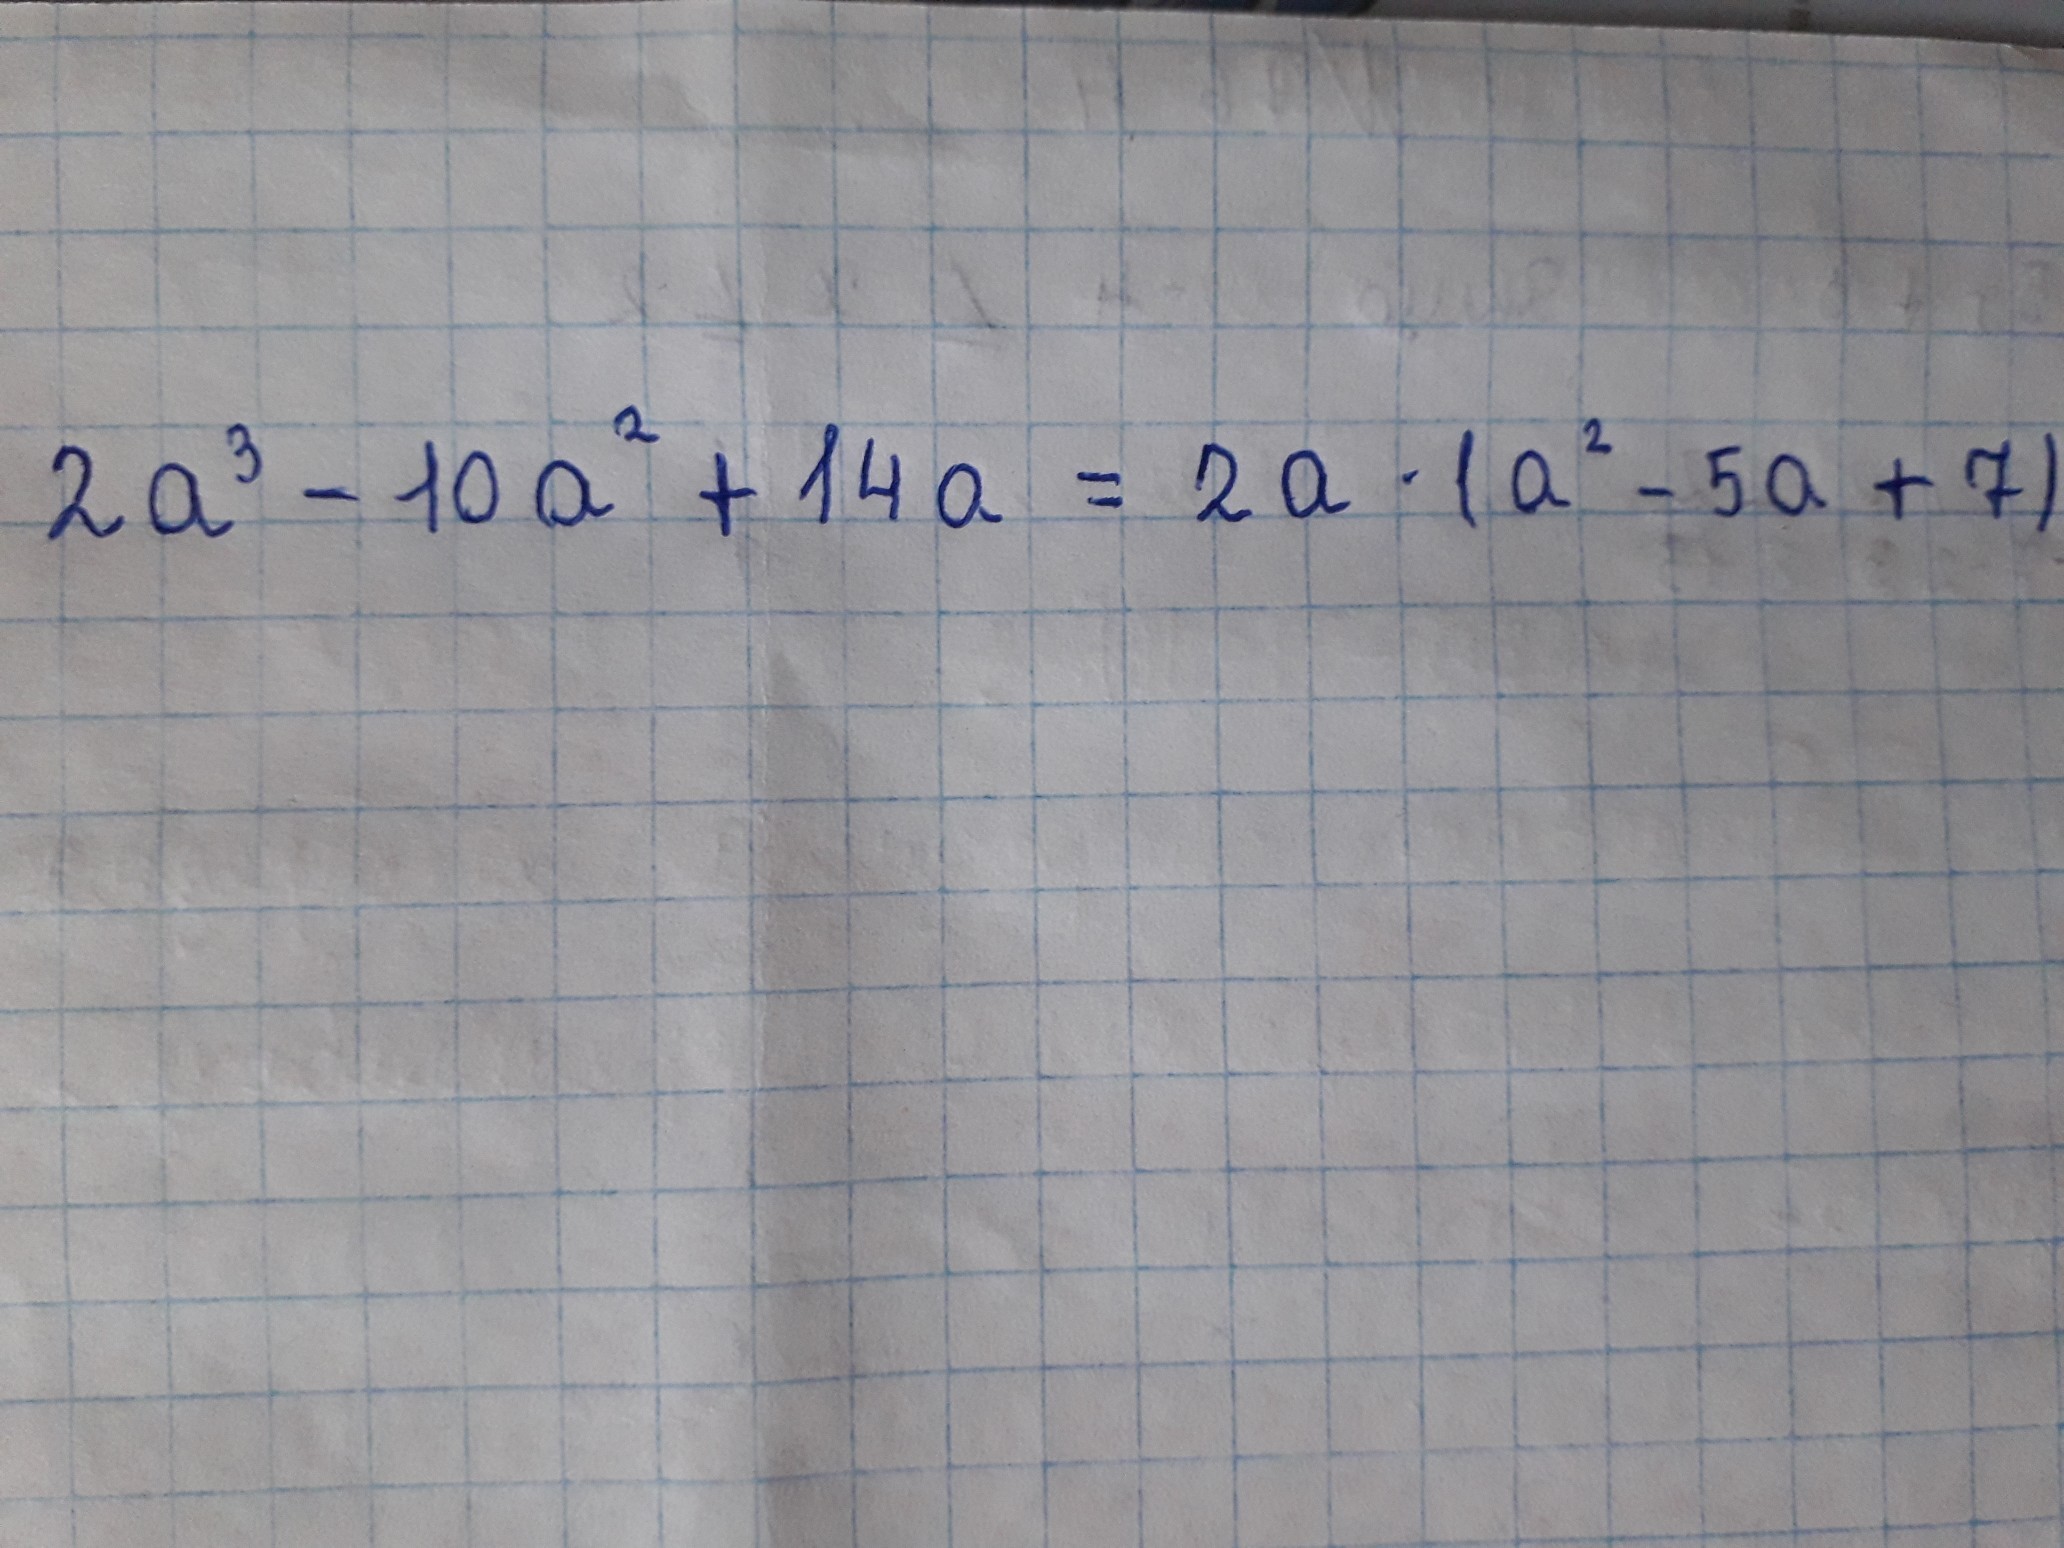 2a³ - 10a² + 14a = 2a · (a² - 5a + 7)